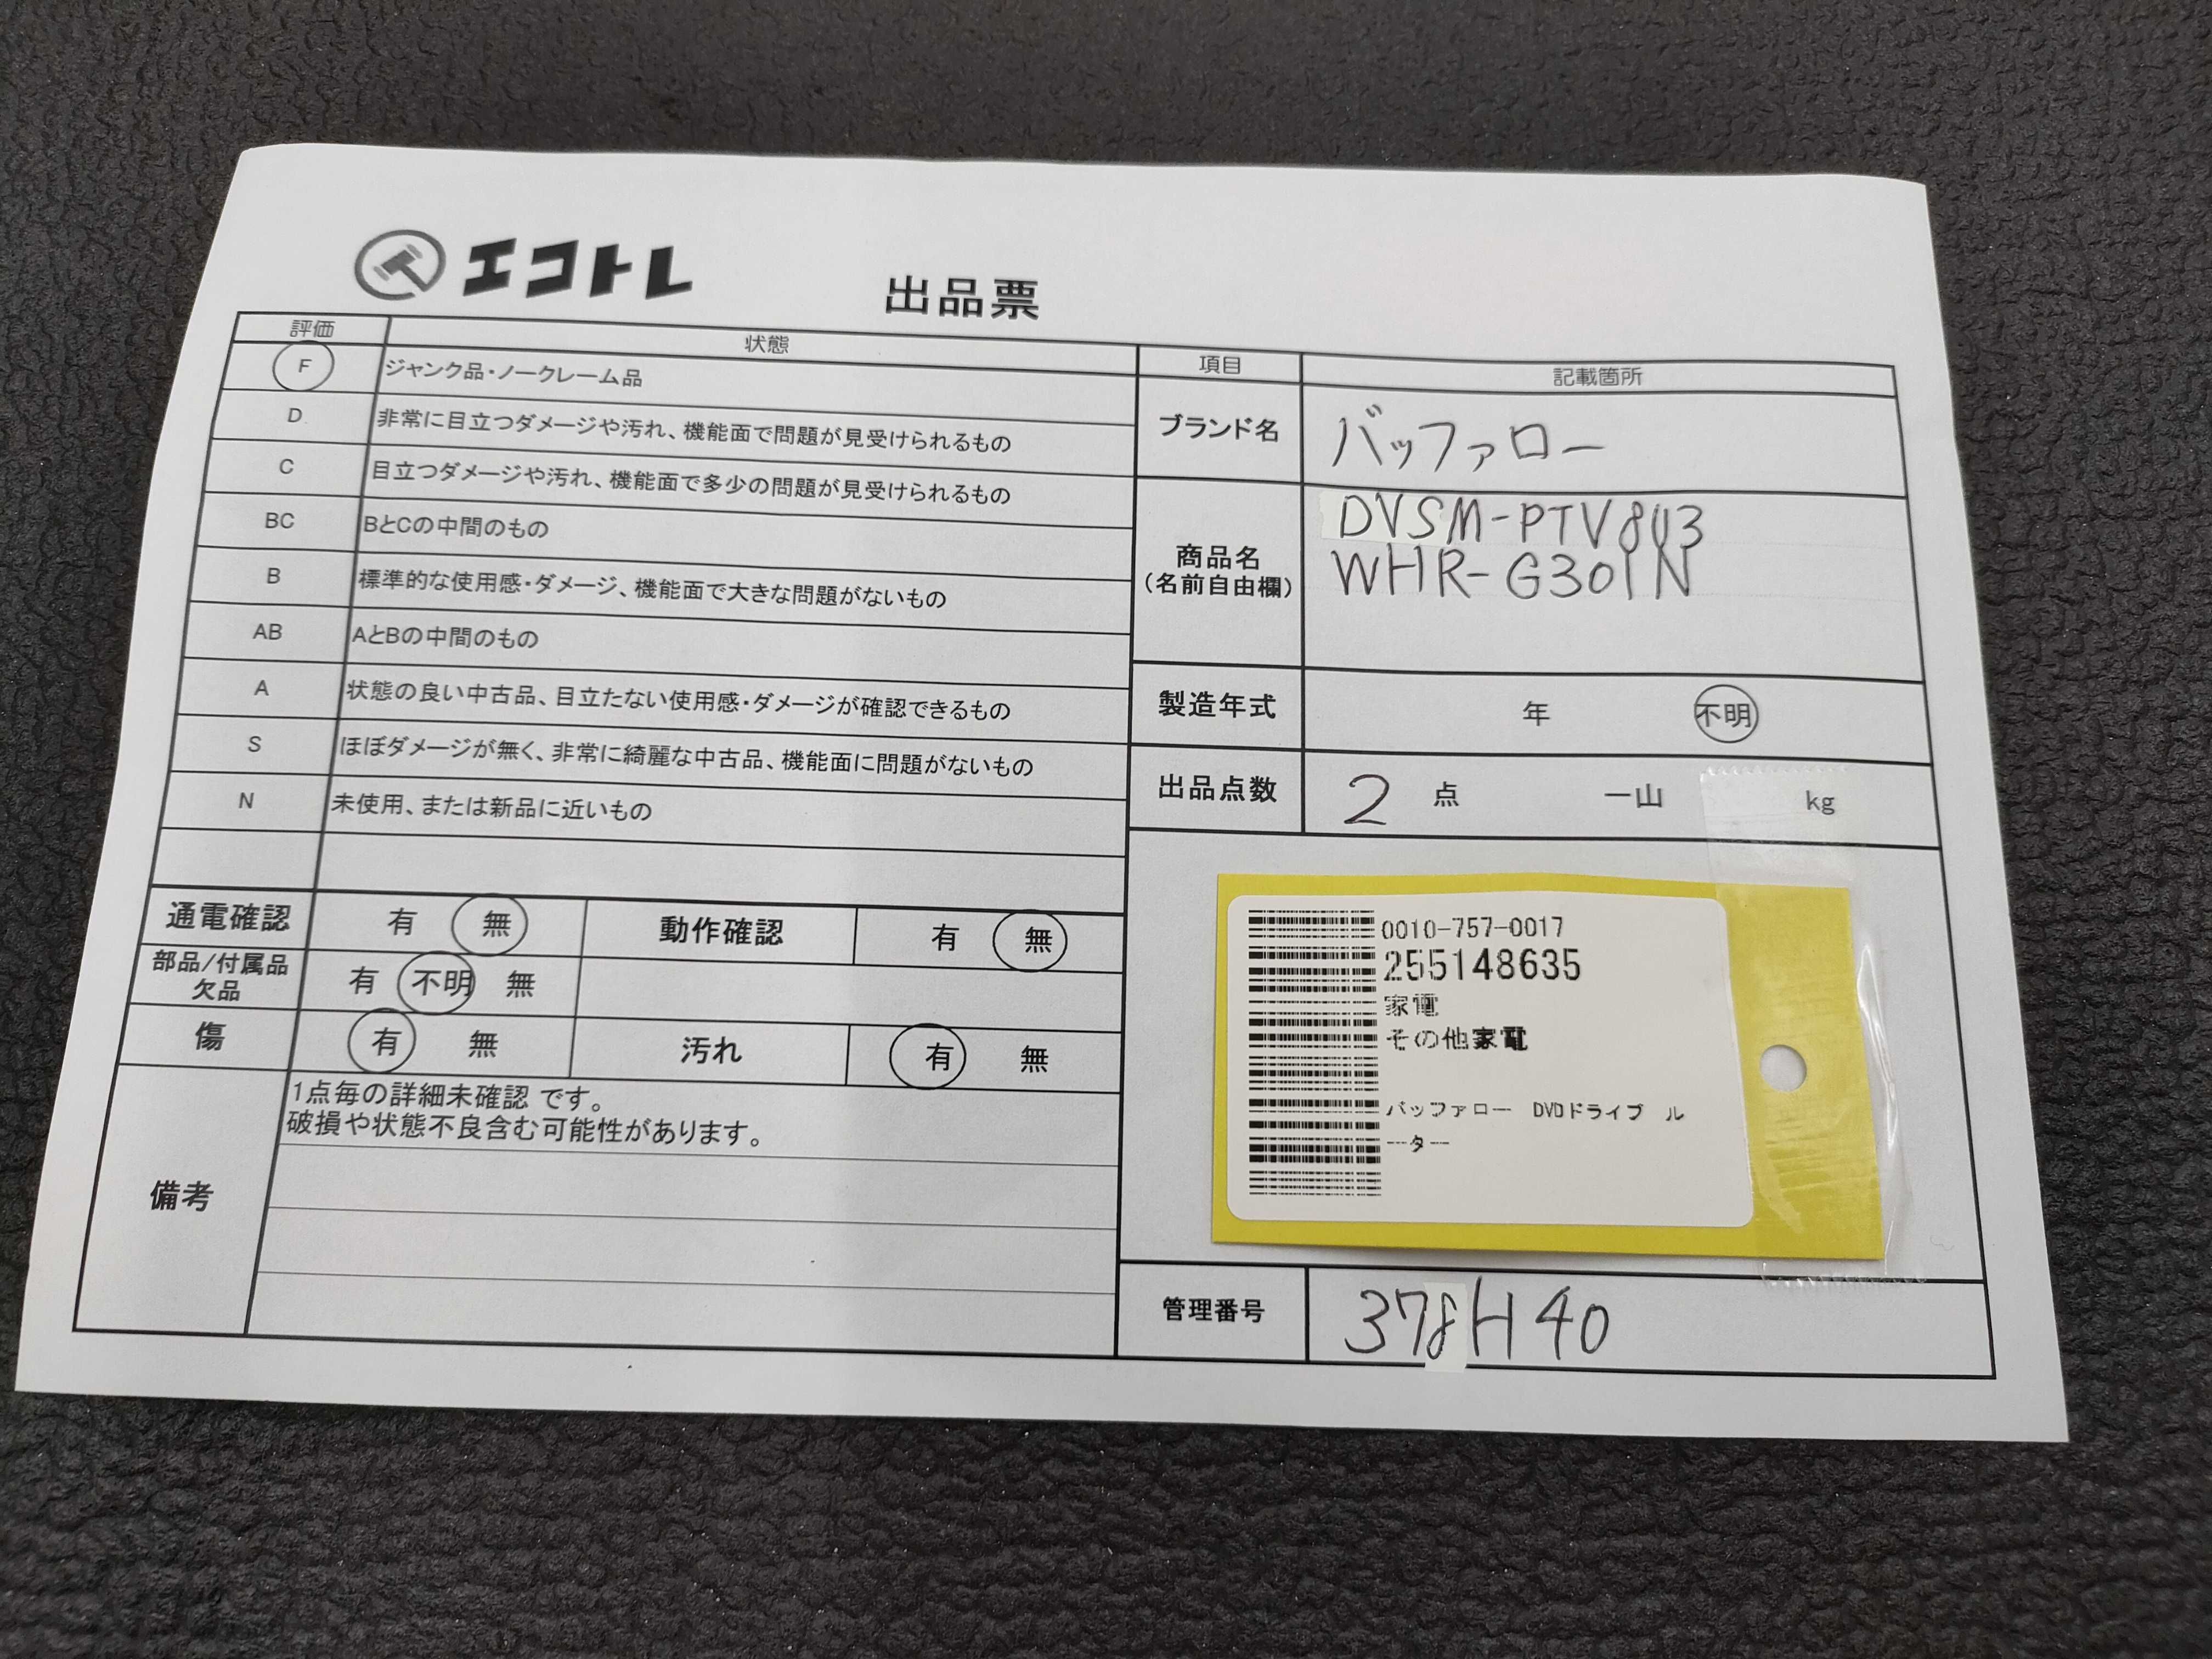 エコトレ
出品票
評価 状態
F ジャンク品・ノークレーム品
D 非常に目立つダメージや汚れ、機能面で問題が見受けられるもの
C 目立つダメージや汚れ、機能面で多少の問題が見受けられるもの
BC BとCの中間のもの
B 標準的な使用感・ダメージ、機能面で大きな問題がないもの
AB AとBの中間のもの
A 状態の良い中古品、目立たない使用感・ダメージが確認できるもの
S ほぼダメージが無く、非常に綺麗な中古品、機能面に問題がないもの
N 未使用、または新品に近いもの
通電確認 有 無 動作確認 有 無
部品/付属品
欠品 有 不明 無
傷 有 無 汚れ 有 無
備考
1点毎の詳細未確認 です。
破損や状態不良含む可能性があります。
項目 記載箇所
ブランド名 バッファロー
商品名
(名前自由欄)
DVSM-PTV8U3
WHR-G301N
製造年式 年 不明
出品点数 2 点 一山 kg
0010-757-0017
255148635
家電
その他家電
バッファロー DVDドライブ ル
ーター
管理番号 378H40